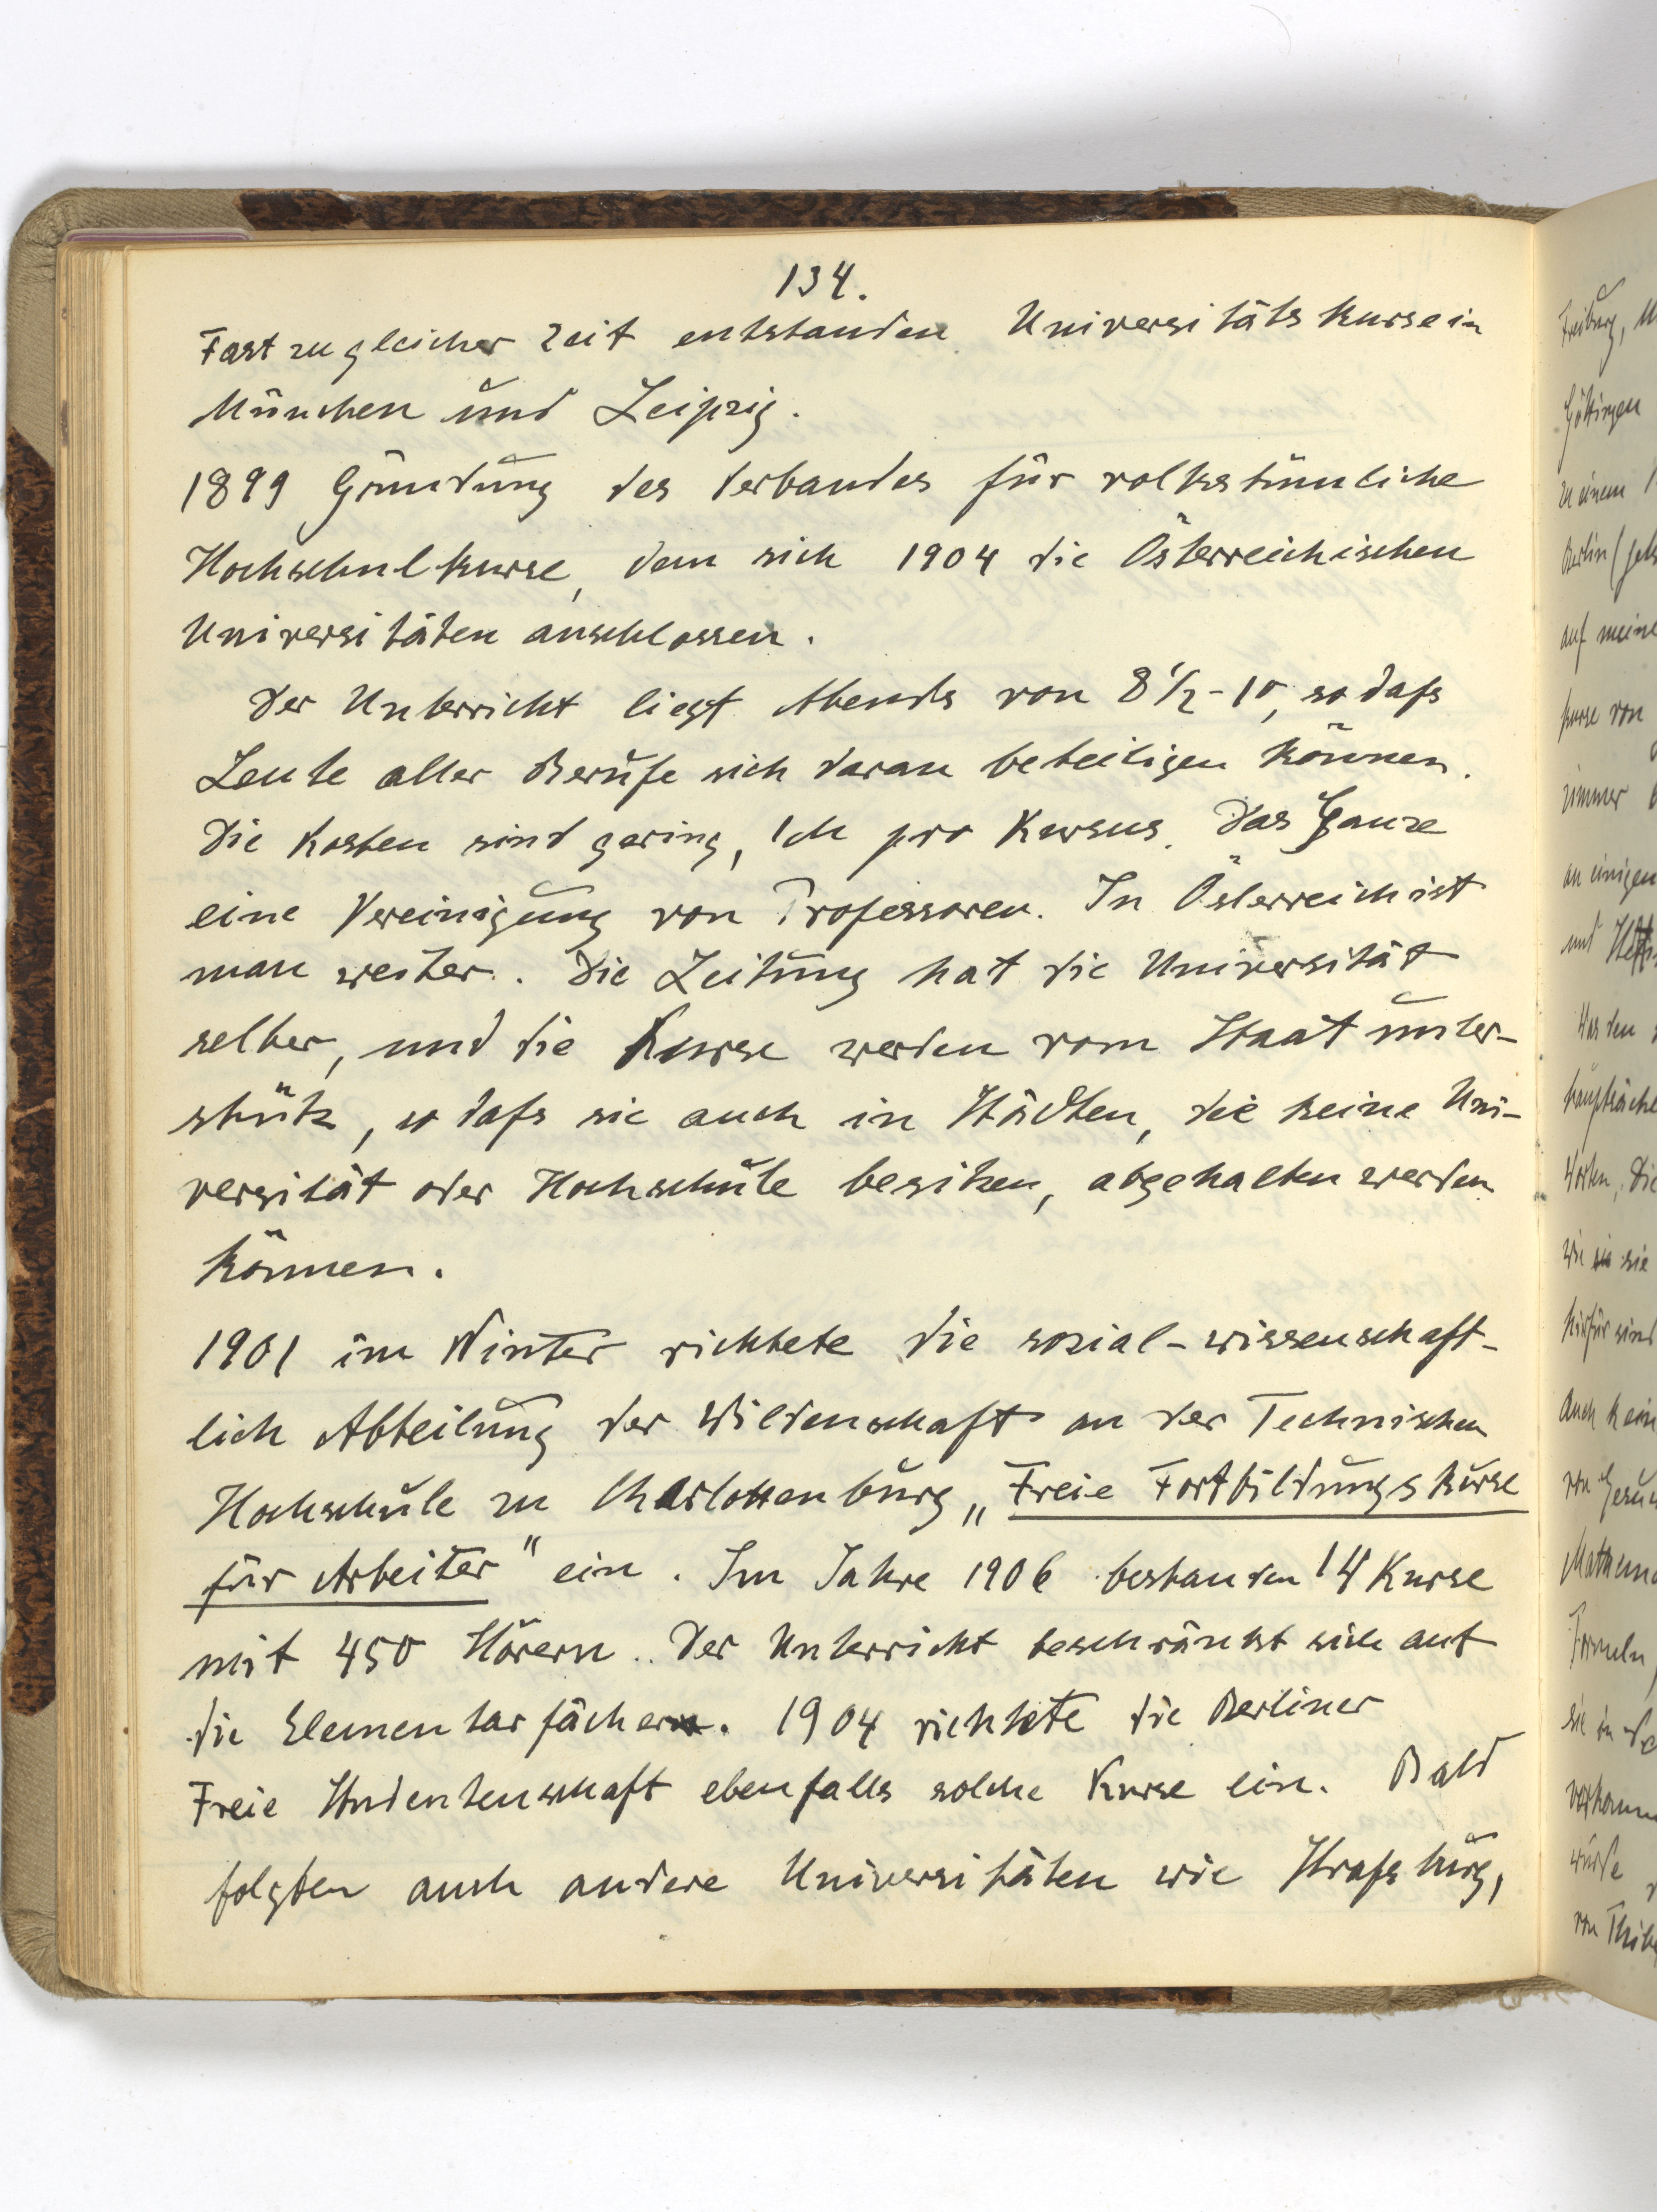 134.
Fast zu gleicher Zeit entstanden Universitätskurse in
München und Leipzig.
1899 Gründung des Verbandes für volkstümliche
Hochschulkurse, dem sich 1904 die Österreichischen
Universitäten anschlossen.
Der Unterricht liegt Abends von 8½-10, so dafs
Leute aller Berufe sich daran beteiligen können.
Die Kosten sind gering, 1 M pro Kursus. Das Ganze
eine Vereinigung von Professoren. In Österreich ist
man weiter. Die Leitung hat die Universität
selber, und die Kurse werden vom Staat unter-
stütz, so dafs sie auch in Städten, die keine Uni-
versität oder Hochschule besitzen, abgehalten werden
können.
1901 im Winter richtete die sozial-wissenschaft-
lich Abteilung der Wildenschaft an der Technischen
Hochschule zu Charlottenburg „Freie Fortbildungskurse
für Arbeiter" ein. Im Jahre 1906 bestanden 14 Kurse
mit 450 Hörern.. Der Unterricht beschränkt sich auf
die Elementarfächer. 1904 richtete die Berliner
Freie Studentenschaft ebenfalls solche Kurse ein. Bald
folgten auch andere Universitäten wie Strafsburg,
Freiburg,
Göttingen
zu einem
Berlin
auf meine
kurse von
zimmer
an einigen
und
Was den
hauptsäche
Worten, Die
wie sie
hirfür sind
Auch kein
von
Mathema
Formeln,
sie in
vorkomm
würde
von